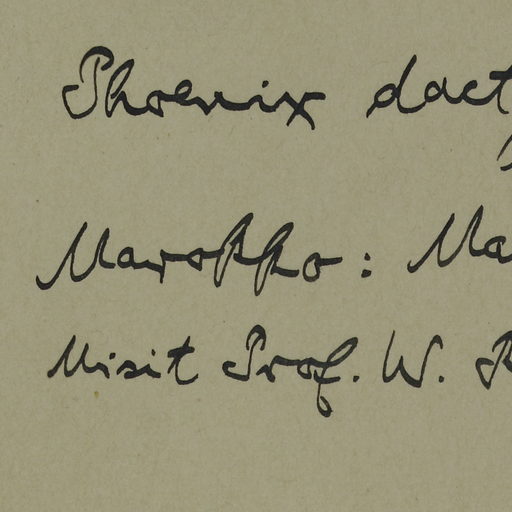 Phoenix dact
Marokko: Ma
Misit Prof. W. R